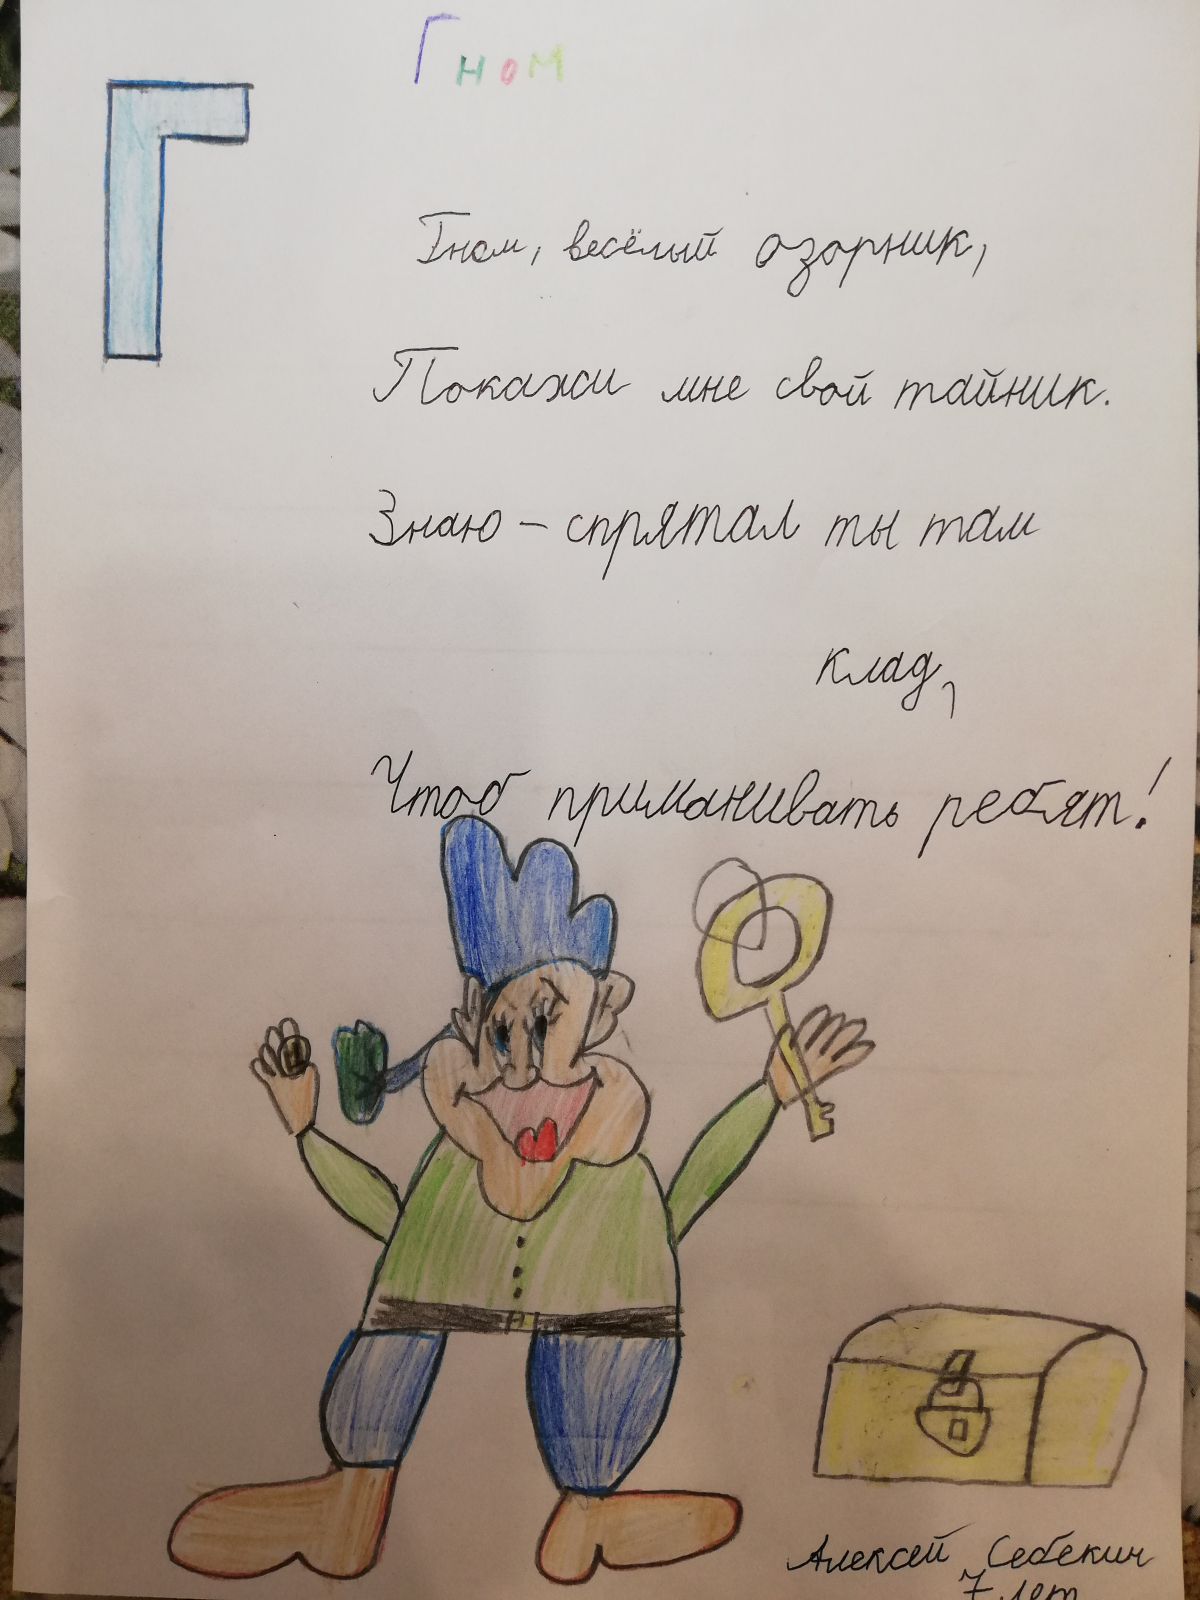 Гном
Г
Гном, весёлый озорник,
Покажи мне свой тайник.
Знаю – спрятал ты там
клад,
Чтоб приманивать ребят!
Алексей Себекин
7 лет